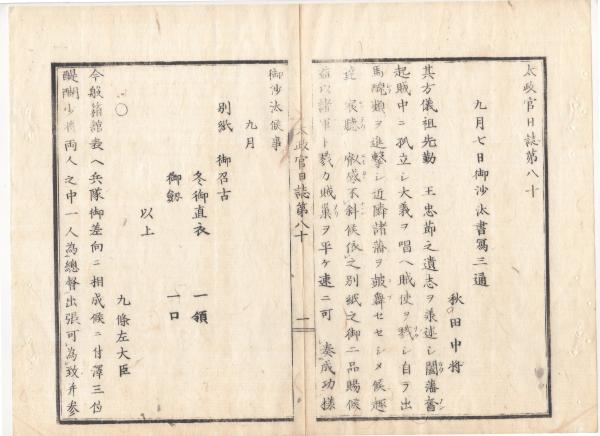 太政官日誌第八十
九月七日御沙汰書寫三通
秋田中将
其方儀祖先勤 王忠節之遺志ヲ乘述シ闔藩奮
起賊中ニ孤立シ大義ヲ唱ヘ賊使ヲ戮シ自ラ出
馬醜類ヲ進撃シ近隣諸藩ヲ鼓舞セセシメ候趣
達 叡聽 叡感不斜候依之別紙之御二品賜候
益以諸軍ト戮力賊巣ヲ平ケ速ニ可 奏成功様
太政官日誌第八十
一
御沙汰候事
九月
別紙 御召古
冬御直衣 一領
御劔 一口
以上
九條左大臣
今般箱館表ヘ兵隊御差向ニ相成候ニ付澤三位
醍醐少将両人之中一人為總督出張可為致并参